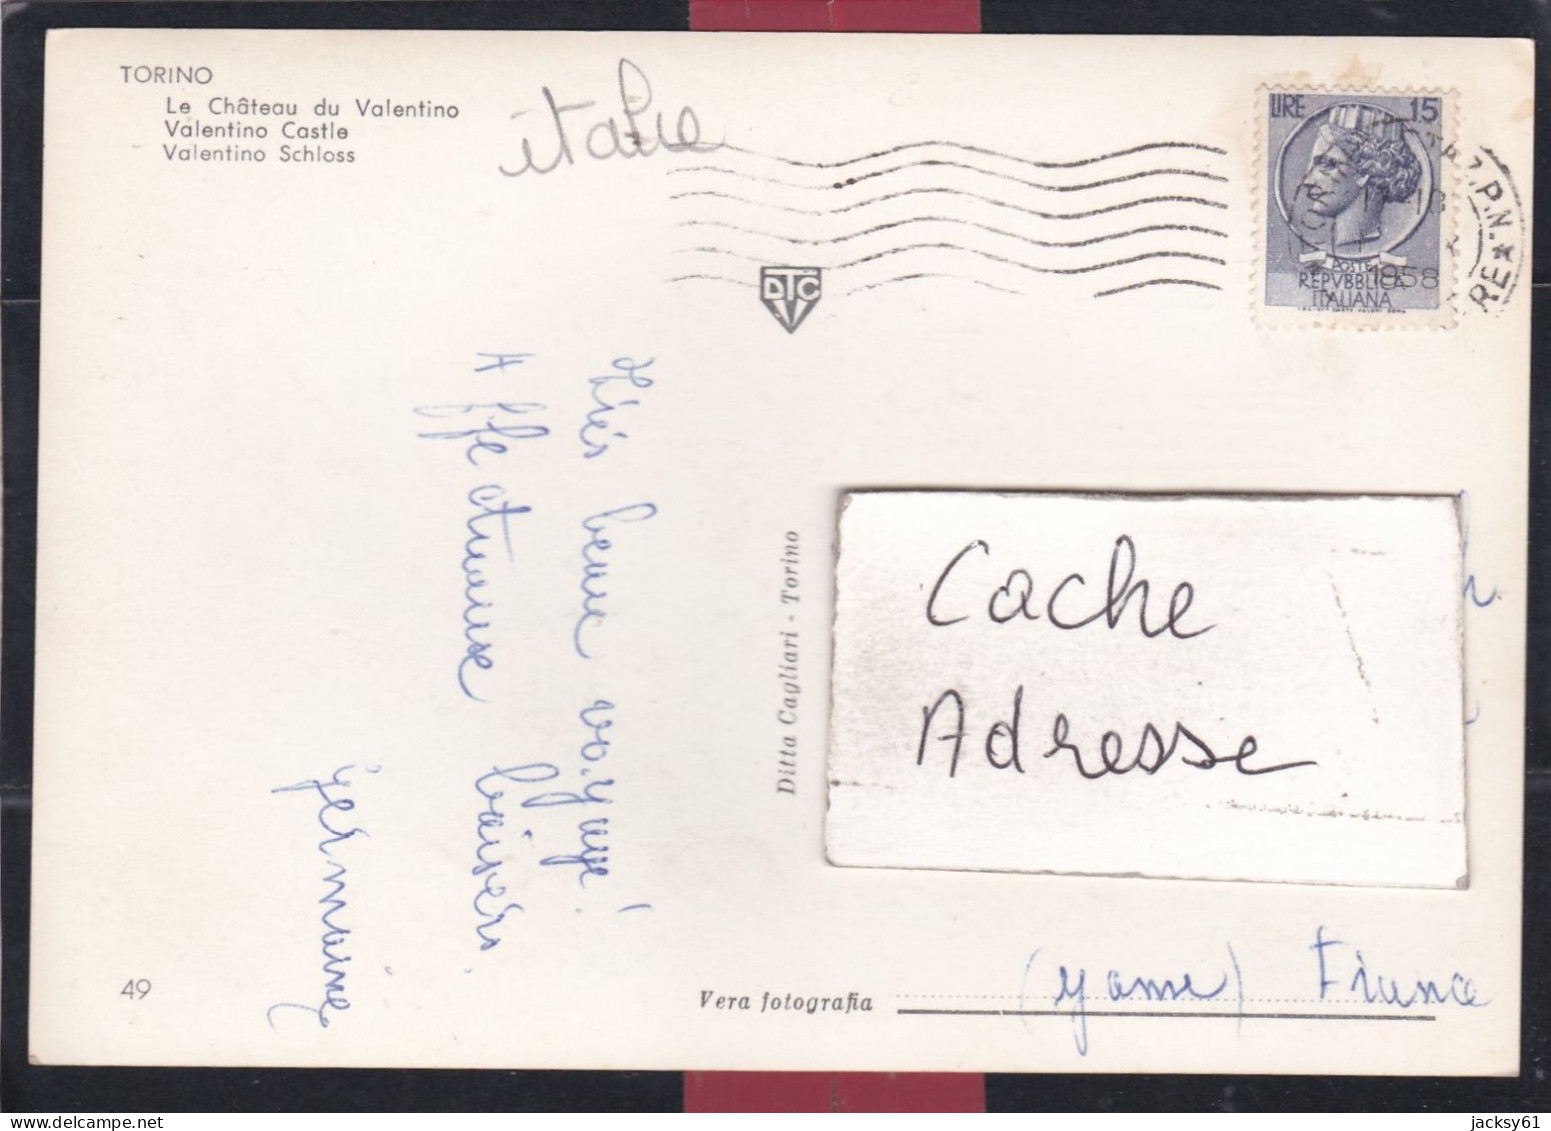 TORINO
Le Château du Valentino
Valentino Castle
Valentino Schloss
italie
LIRE 15
POSTE
REPVBBLICA
ITALIANA
1958
DTC
Très beau voyage!
Affectueuse baisers
Germaine
Ditta Cagliari - Torino
Cache
Adresse
(yonne) France
49
Vera fotografia
jacksy61